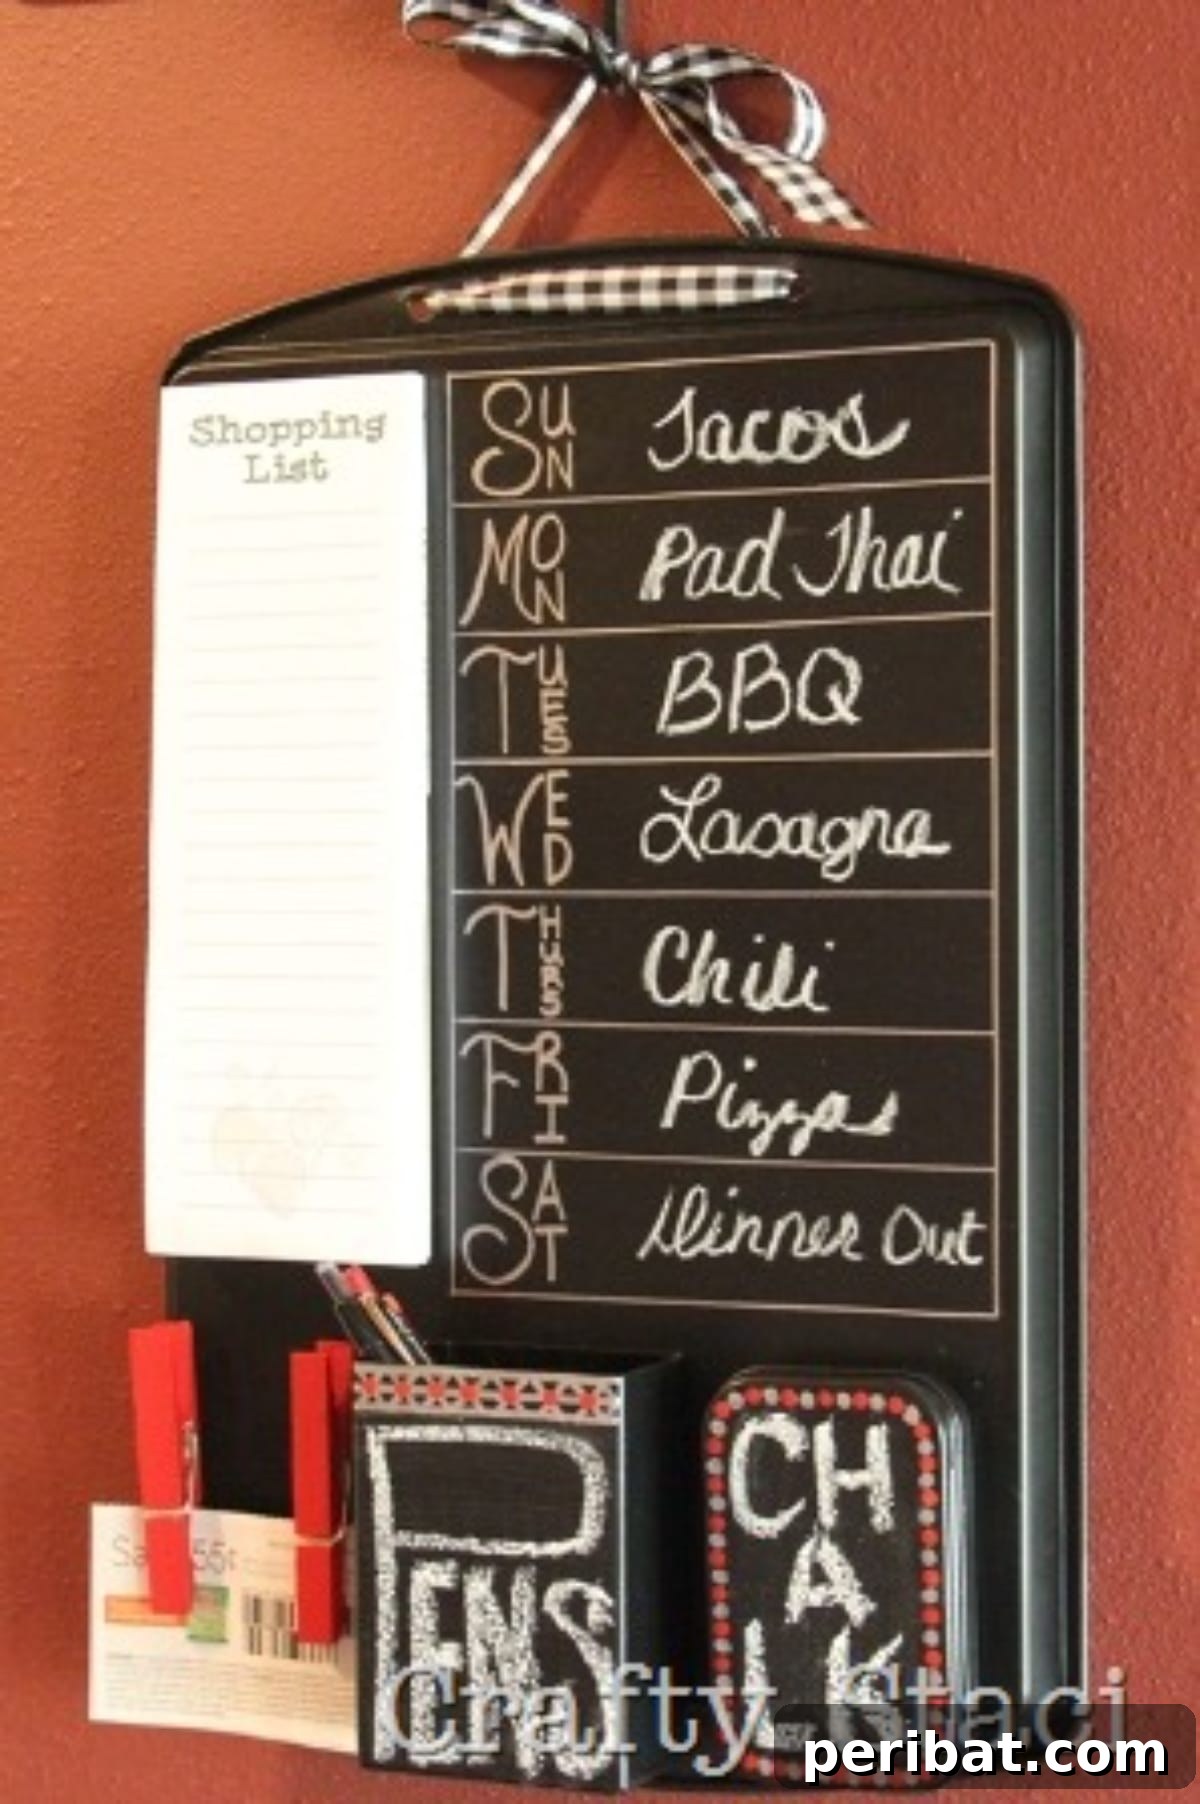 Shopping
List
SUN Tacos
MON Pad Thai
TUES BBQ
WED Lasagna
THURS Chili
FRI Pizza
SAT Dinner Out
55¢
PENS
CHALK
Crafty Staci
peribat.com